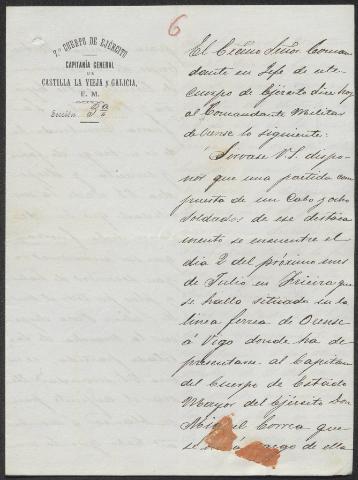 6
7º CUERPO DE EJÉRCITO
CAPITANÍA GENERAL
DE
CASTILLA LA VIEJA y GALICIA,
E. M.
Sección 3ª
El Excmo Señor Coman
dante en Jefe de este
Cuerpo de Ejército dice hoy
al Comandante Militar
de Orense lo siguiente:
Sirvase V.S. dispo-
ner que una partida com
puesta de un Cabo y ocho
soldados de ese destaca
mento se encuentre el
dia 2 del próximo mes
de Julio en Frieira que
se halla situada en la
linea ferrea de Orense
á Vigo donde ha de
presentarse al Capitan
del Cuerpo de Estado
Mayor del Ejército Don
Miguel Correa que
se cargo de ella